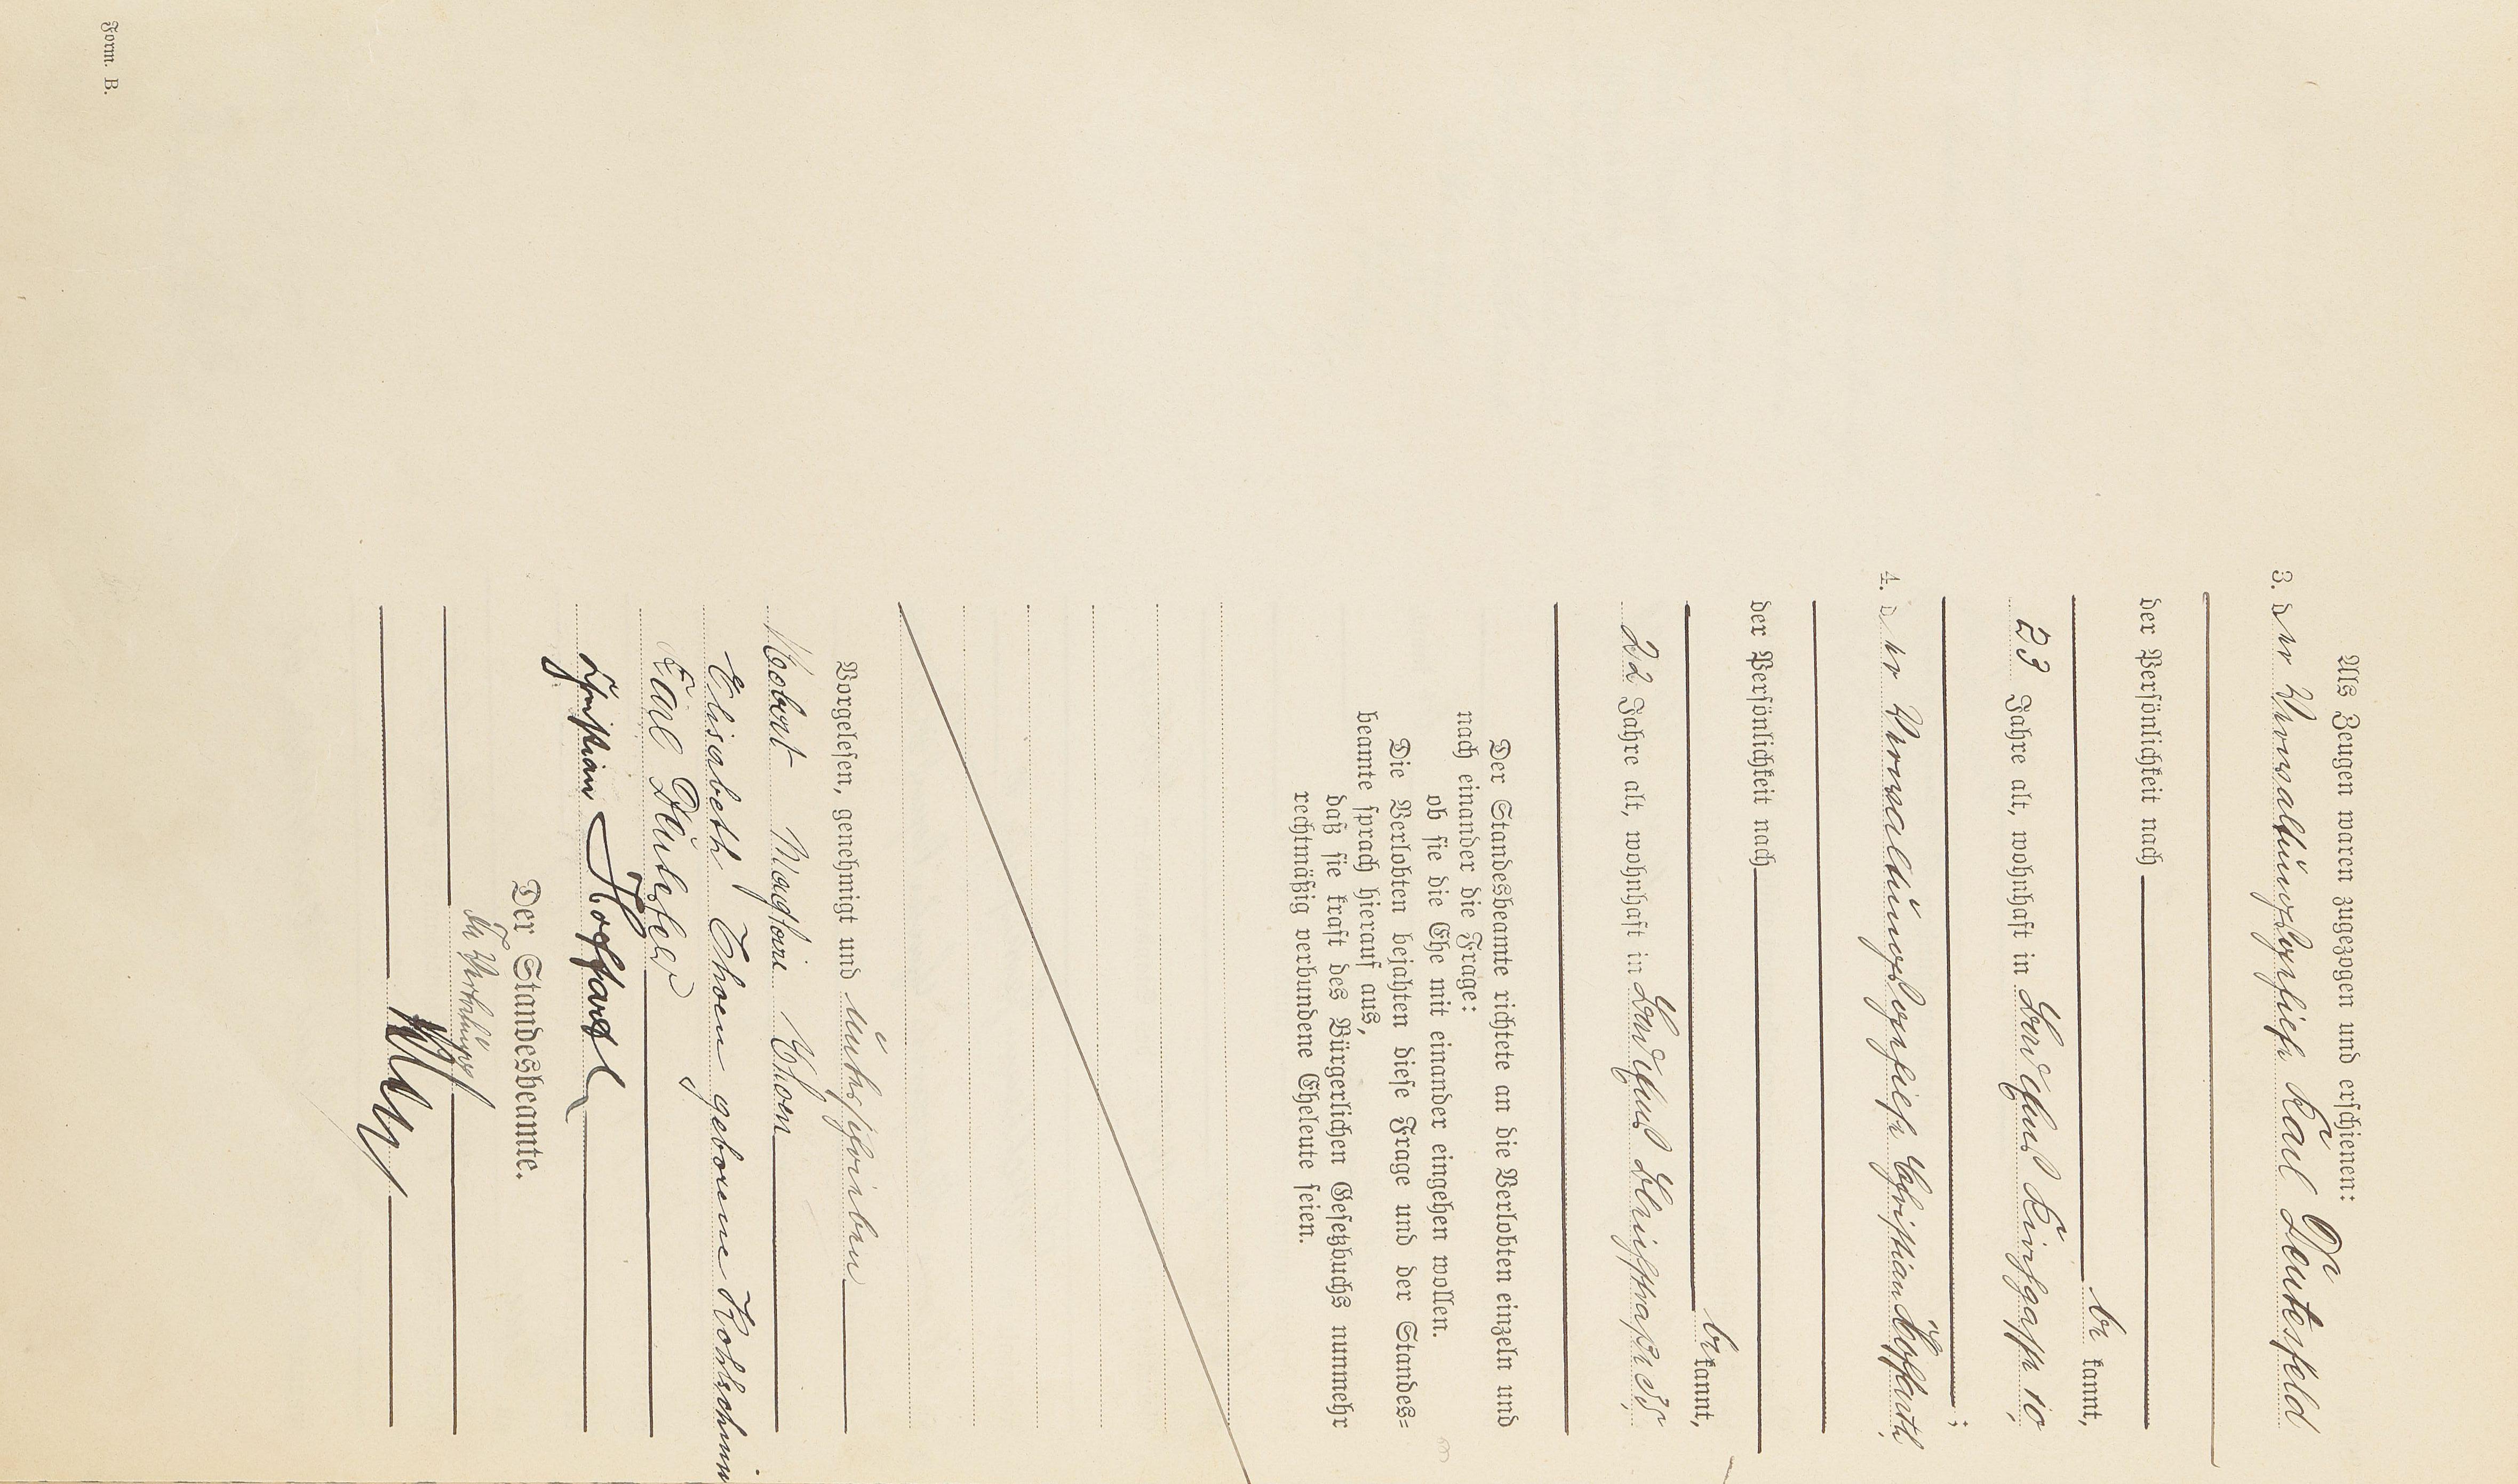 Als Zeugen waren zugezogen und erschienen:
3. der Verwaltungsgehilfe Karl Deutesfeld
der Persönlichkeit nach
be kannt,
23 Jahre alt, wohnhaft in Landshut Kirchgasse 10
;
4. der Verwaltungsgehilfe Christian
der Persönlichkeit nach
be kannt,
22 Jahre alt, wohnhaft in
Der Standesbeamte richtete an die Verlobten einzeln und
nach einander die Frage:
ob sie die Ehe mit einander eingehen wollen.
Die Verlobten bejahten diese Frage und der Standes-
beamte sprach hierauf aus,
daß sie kraft des Bürgerlichen Gesetzbuchs nunmehr
rechtmäßig verbundene Eheleute seien.
Vorgelesen, genehmigt und unterschrieben
Robert Thoen
Elisabeth Thoen geborene
Karl
Christian
Der Standesbeamte.
In Vertretung
Form. B.